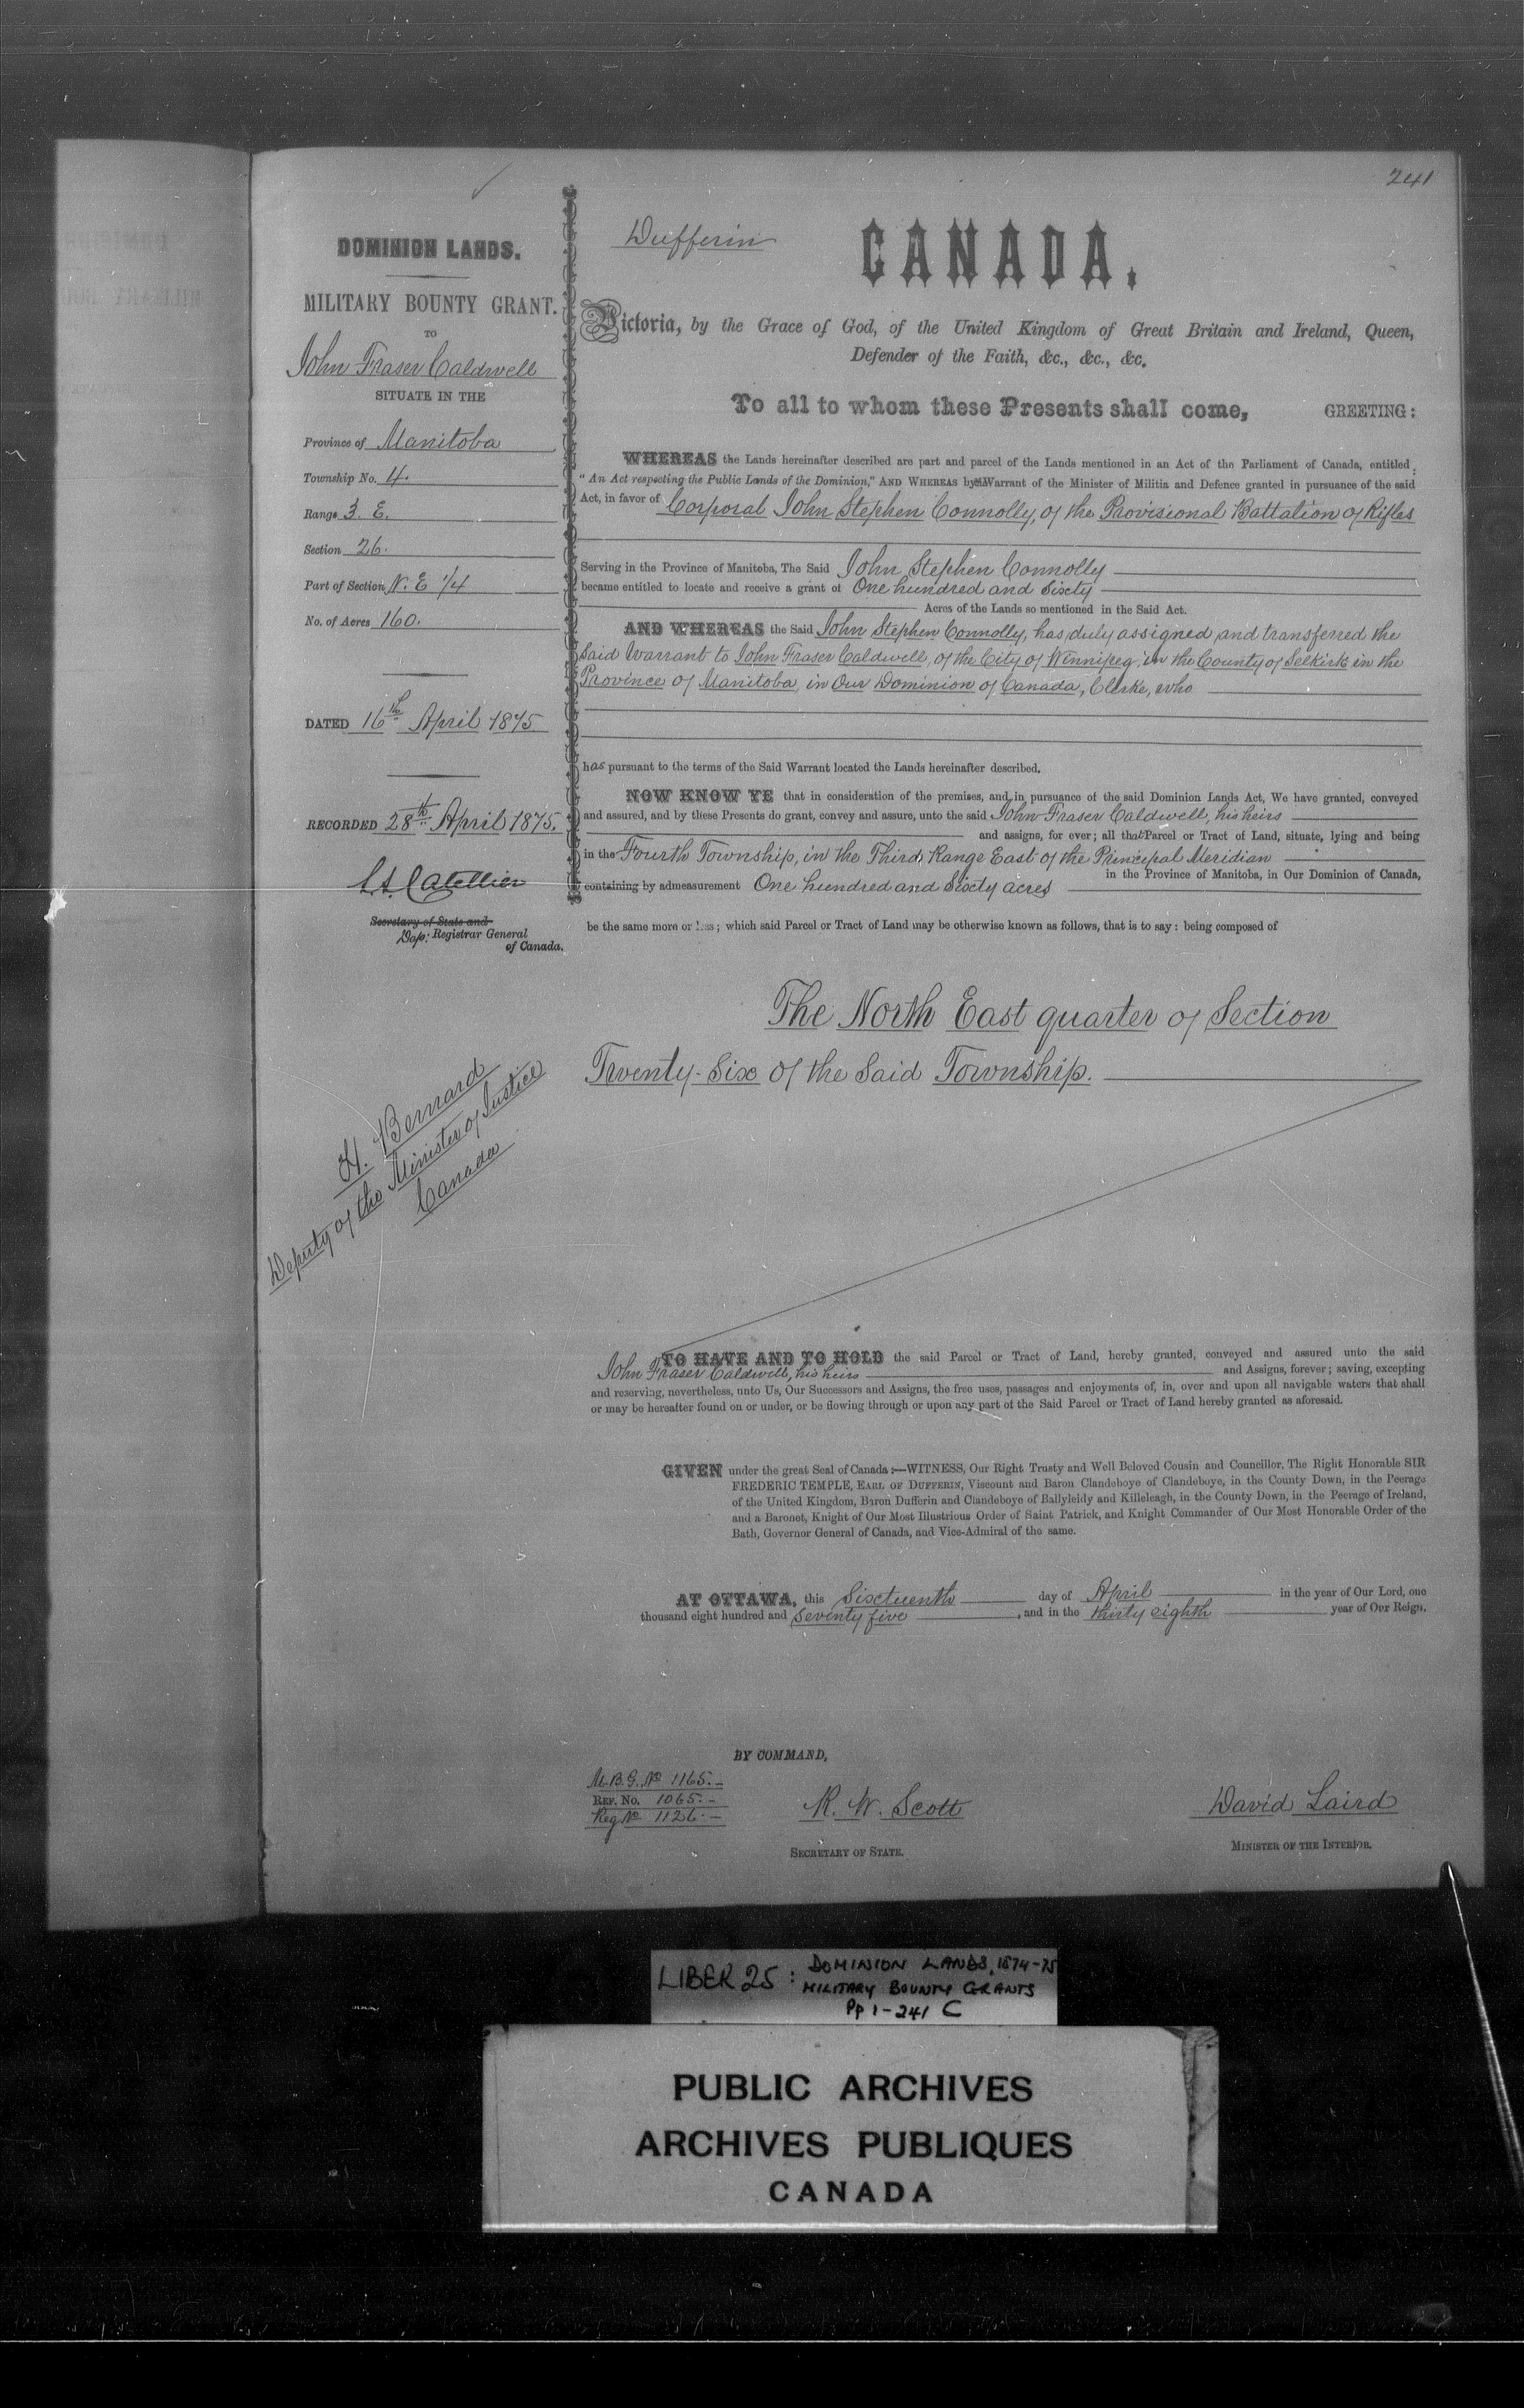 241
DOMINION LANDS.
MILITARY BOUNTY GRANT.
TO
John Fraser Caldwell
SITUATE IN THE
Province of Manitoba
Township No. 4.
Range 3. E.
Section 26.
Part of Section N. E 1/4
No. of Acres 160.
DATED 16th April 1875
RECORDED 28th April 1875.
Secretary of State and
Dep: Registrar General
of Canada.
H. Bernard
Deputy of the Minister of Justice
Canada
Dufferin
CANADA.
Victoria, by the Grace of God, of the United Kingdom of Great Britain and Ireland, Queen,
Defender of the Faith, &c., &c., &c.
To all to whom these Presents shall come, GREETING:
WHEREAS the Lands hereinafter described are part and parcel of the Lands mentioned in an Act of the Parliament of Canada, entitled
"An Act respecting the Public Lands of the Dominion," AND WHEREAS by Warrant of the Minister of Militia and Defence granted in pursuance of the said
Act, in favor of Corporal John Stephen Connolly, of the Provisional Battalion of Rifles
Serving in the Province of Manitoba, The Said John Stephen Connolly
became entitled to locate and receive a grant of One hundred and Sixty
Acres of the Lands so mentioned in the Said Act.
AND WHEREAS the Said John Stephen Connolly, has duly assigned and transferred the
Said Warrant to John Fraser Caldwell, of the City of Winnipeg in the County of Selkirk in the
Province of Manitoba, in Our Dominion of Canada, Clerke, who
has pursuant to the terms of the Said Warrant located the Lands hereinafter described.
NOW KNOW YE that in consideration of the premises, and in pursuance of the said Dominion Lands Act, We have granted, conveyed
and assured, and by these Presents do grant, convey and assure, unto the said John Fraser Caldwell, his heirs
and assigns, for ever; all that Parcel or Tract of Land, situate, lying and being
in the Fourth Township, in the Third Range East of the Principal Meridian
in the Province of Manitoba, in Our Dominion of Canada,
containing by admeasurement One hundred and Sixty acres
be the same more or less; which said Parcel or Tract of Land may be otherwise known as follows, that is to say: being composed of
The North East quarter of Section
Twenty-Six of the Said Township.
TO HAVE AND TO HOLD the said Parcel or Tract of Land, hereby granted, conveyed and assured unto the said
John Fraser Caldwell, his heirs and Assigns, forever; saving, excepting
and reserving, nevertheless, unto Us, Our Successors and Assigns, the free uses, passages and enjoyments of, in, over and upon all navigable waters that shall
or may be hereafter found on or under, or be flowing through or upon any part of the Said Parcel or Tract of Land hereby granted as aforesaid.
GIVEN under the great Seal of Canada:—WITNESS, Our Right Trusty and Well Beloved Cousin and Councillor, The Right Honorable SIR
FREDERIC TEMPLE, EARL OF DUFFERIN, Viscount and Baron Clandeboye of Clandeboye, in the County Down, in the Peerage
of the United Kingdom, Baron Dufferin and Clandeboye of Ballyleidy and Killeleagh, in the County Down, in the Peerage of Ireland,
and a Baronet, Knight of Our Most Illustrious Order of Saint Patrick, and Knight Commander of Our Most Honorable Order of the
Bath, Governor General of Canada, and Vice-Admiral of the same.
AT OTTAWA, this Sixteenth day of April in the year of Our Lord, one
thousand eight hundred and Seventy five, and in the thirty eighth year of Our Reign.
BY COMMAND,
M.B.G. No 1165.
REF. No. 1065.
Reg No 1126.
R. W. Scott
SECRETARY OF STATE.
David Laird
MINISTER OF THE INTERIOR.
LIBER 25: DOMINION LANDS, 1874-75
MILITARY BOUNTY GRANTS
Pp 1-241 C
PUBLIC ARCHIVES
ARCHIVES PUBLIQUES
CANADA